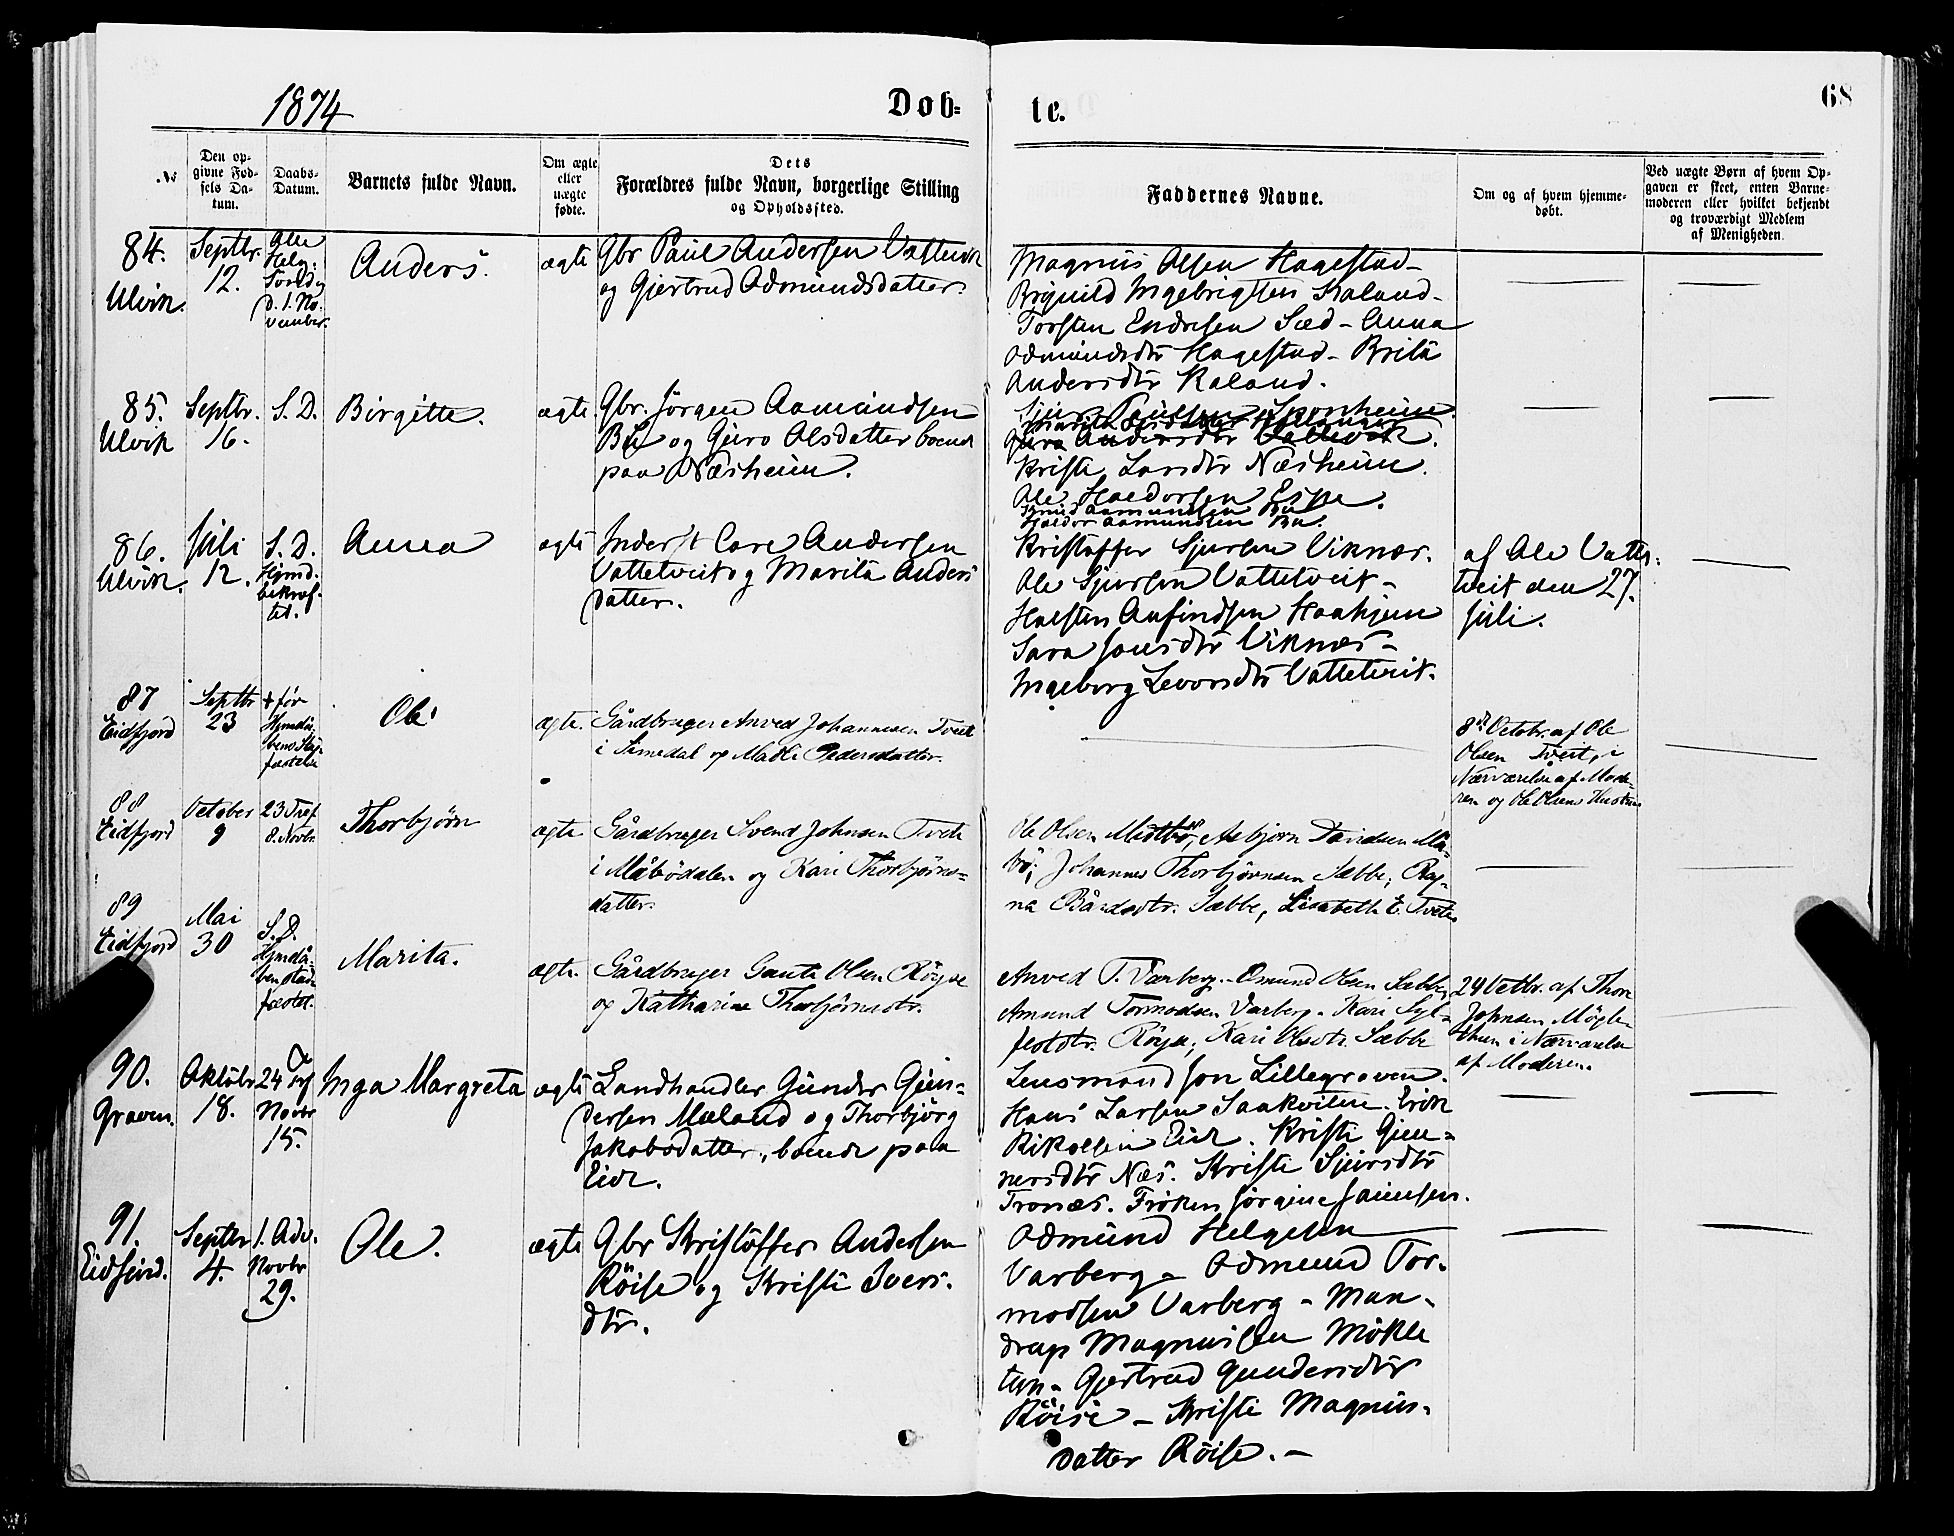 1874
Døb-
te.
68
№
Den op-
givne Fød-
sels Da-
tum.
Daabs-
Datum.
Barnets fulde Navn.
Om ægte
eller
uægte
fødte.
Dets
Forældres fulde Navn, borgerlige Stilling
og Opholdssted.
Faddernes Navne.
Om og af hvem hjemme-
døbt.
Ved uægte Børn af hvem Op-
gaven er skeet, enten Barne-
moderen eller hvilket bekjendt
og troværdigt Medlem
af Menigheden.
84.
Ulvik.
Septbr.
12.
Alle
Helg:
Søndg
d. 1. No-
vember.
Anders.
ægte
Gbr Paul Andersen Vattevik
og Gjertrud Odmundsdatter.
Magnus Olsen Hagestad-
Brynild Ingebrigtsen Kaland-
Torsten Endresen Sæd - Anna
Odmundsdtr Hagestad - Brita
Andersdtr Kaland.
85.
Ulvik
Septbr.
16.
S. D.
Birgitte.
ægte.
Gbr. Jørgen Aamundsen
Bu og Guro Olsdatter boende
paa Næsheim.
Sjur Paulsen Sponheim
Guro Andersdtr Vattevik.
Kristi Larsdtr Næsheim.
Ole Haldorsen Espe.
Knud Aamundsen Bu
Haldor Aamundsen Bu.
86.
Ulvik.
Juli
12.
S. D.
Hjmd.
bekræf-
tet.
Anna
ægte
Inderst Lars Andersen
Vattetveit og Marita Anders
datter.
Kristoffer Sjursen Viknes.
Ole Sjursen Vattetveit -
Halsten Anfindsen Haahjem
Sara Jonsdtr Viknes -
Ingeborg Levorsdtr Vattetveit.
af Ole Vatte-
tveit den 27.
Juli.
87
Eidfjord
Septbr
23
+ før
Hjmdå-
bens Stad-
fæstelse
Ole
ægte.
Gårdbruger Anved Johannesen Tveit
i Simedal og Madli Pedersdatter.
8de Octobr. af Ole
Olsen Tveit, i
Nærværelse af Mode-
ren og Ole Olsens Hustru
88
Eidfjord
October
9
23 Tref
8. Novbr.
Thorbjørn
ægte
Gårdbruger Svend Johnsen Tveite
i Måbødalen og Kari Thorbjørns-
datter.
Ole Olsen Midtbø, Asbjørn Davidsen Må-
bø; Johannes Thorbjørnsen Sæbbe; Rag-
na Bårdsdtr. Sæbbe, Lisabeth E. Tveite
89
Eidfjord
Mai
30
S. D.
Hjmdå-
ben stad-
fæstet.
Marita.
ægte.
Gårdbruger Gaute Olsen Røyse
og Katharine Thorbjørnsdtr.
Anved T. Varberg. Osmund Olsen Sæbbe,
Amund Tormodsen Varberg. Kari Syl-
festdtr. Røyse; Kari Olsdtr. Sæbbe
24 Octbr. af Thore
Johnsen Mögle-
thun i Nærværelse
af Moderen.
90.
Graven.
Oktobr
18.
24 S. e Tref
Novbr
15.
Inga Margreta
ægte
Landhandler Gunder Gun-
dersen Mæland og Thorbjørg
Jakobsdatter, boende paa
Eide.
Lensmand Jon Lillegraven.
Hans Larsen Saakvitne. Erik
Rikolsen Eide. Kristi Gun-
nersdtr Næs. Kristi Sjursdtr
Tronæs. Frøken Jørgine Joimsen.
91.
Eidfjord.
Septbr
4.
1. Adv.
Novbr
29.
Ole.
ægte
Gbr Kristoffer Andersen
Röise og Kristi Ivers-
dtr.
Odmund Helgesen
Varberg - Odmund Tor-
modsen Varberg - Man-
drup Magnusen Møkle
tun - Gjertrud Gundersdtr
Röise - Kristi Magnus-
datter Röise. -